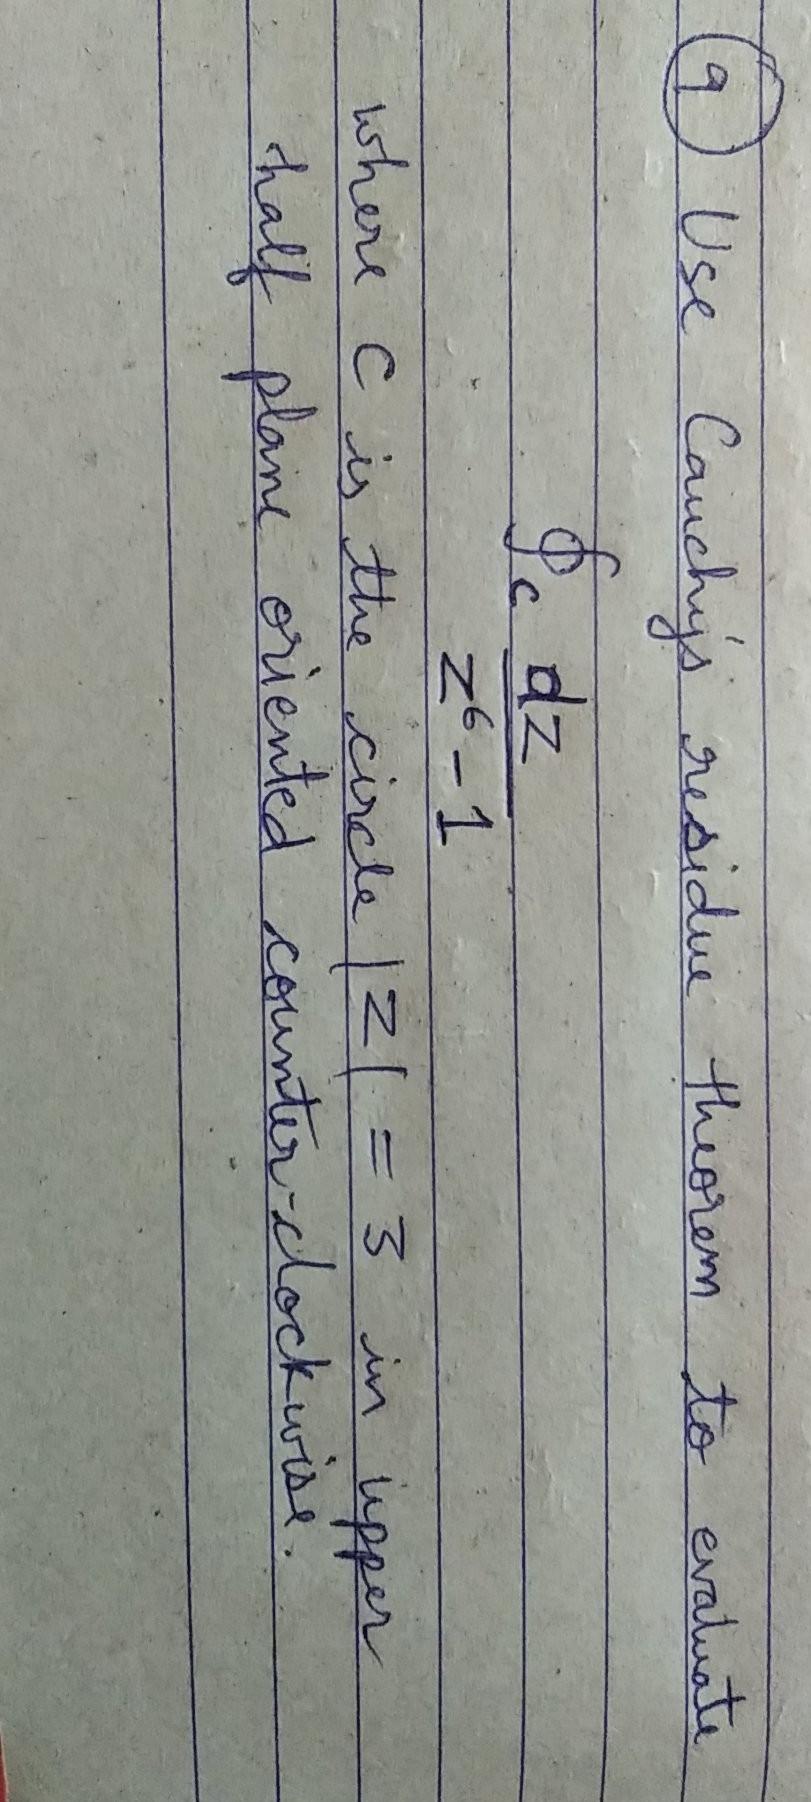 9 Use Cauchy's residue theorem to evaluate
∮c dz / z⁶ - 1
where C is the circle |z| = 3 in upper
half plane oriented counter-clockwise.